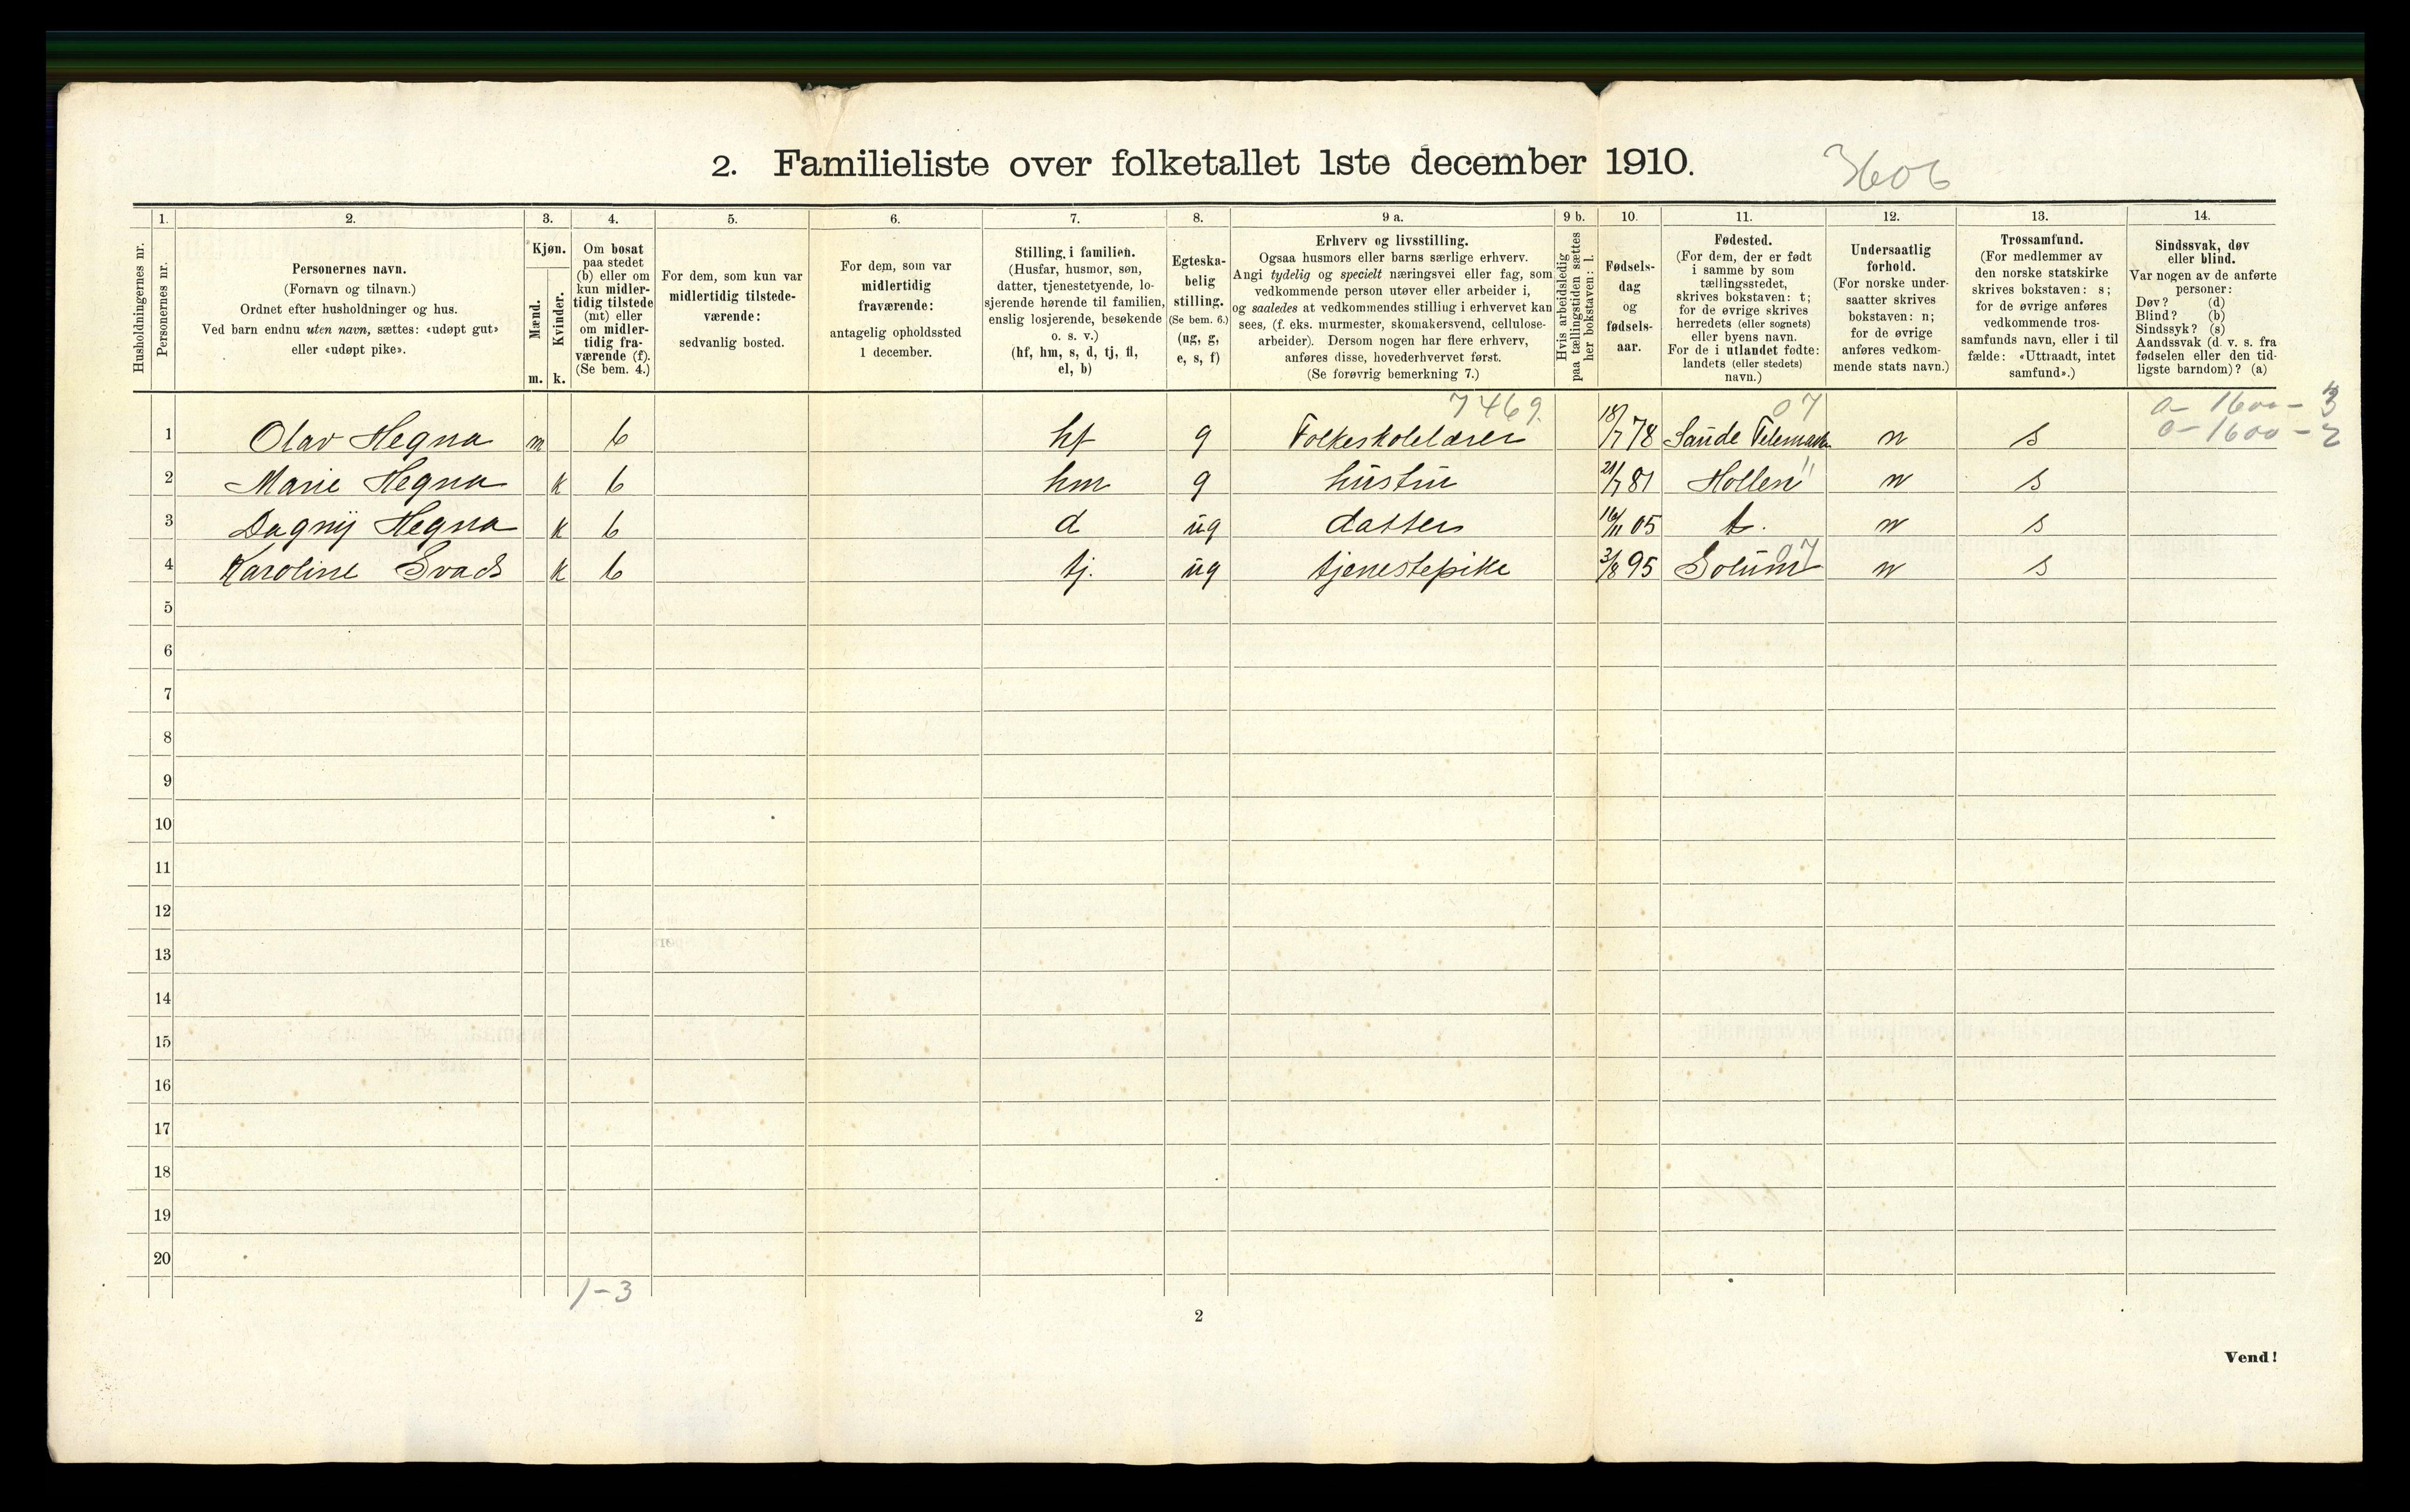 2. Familieliste over folketallet 1ste december 1910.
3606
1. 2. 3. 4. 5. 6. 7. 8. 9 a. 9 b. 10. 11. 12. 13. 14.
Husholdningernes nr.
Personernes nr.
Personernes navn.
(Fornavn og tilnavn.)
Ordnet efter husholdninger og hus.
Ved barn endnu uten navn, sættes: «udøpt gut»
eller «udøpt pike».
Kjøn.
Mænd.
Kvinder.
m. k.
Om bosat
paa stedet
(b) eller om
kun midler-
tidig tilstede
(mt) eller
om midler-
tidig fra-
værende (f).
(Se bem. 4.)
For dem, som kun var
midlertidig tilstede-
værende:
sedvanlig bosted.
For dem, som var
midlertidig
fraværende:
antagelig opholdssted
1 december.
Stilling i familien.
(Husfar, husmor, søn,
datter, tjenestetyende, lo-
sjerende hørende til familien,
enslig losjerende, besøkende
o. s. v.)
(hf, hm, s, d, tj, fl,
el, b)
Egteska-
belig
stilling.
(Se bem. 6.)
(ug, g,
e, s, f)
Erhverv og livsstilling.
Ogsaa husmors eller barns særlige erhverv.
Angi tydelig og specielt næringsvei eller fag, som
vedkommende person utøver eller arbeider i,
og saaledes at vedkommendes stilling i erhvervet kan
sees, (f. eks. murmester, skomakersvend, cellulose-
arbeider). Dersom nogen har flere erhverv,
anføres disse, hovederhvervet først.
(Se forøvrig bemerkning 7.)
Hvis arbeidsledig
paa tællingstiden sættes
her bokstaven: l.
Fødsels-
dag
og
fødsels-
aar.
Fødested.
(For dem, der er født
i samme by som
tællingsstedet,
skrives bokstaven: t;
for de øvrige skrives
herredets (eller sognets)
eller byens navn.
For de i utlandet fødte:
landets (eller stedets)
navn.)
Undersaatlig
forhold.
(For norske under-
saatter skrives
bokstaven: n;
for de øvrige
anføres vedkom-
mende stats navn.)
Trossamfund.
(For medlemmer av
den norske statskirke
skrives bokstaven: s;
for de øvrige anføres
vedkommende tros-
samfunds navn, eller i til
fælde: «Uttraadt, intet
samfund».)
Sindssvak, døv
eller blind.
Var nogen av de anførte
personer:
Døv? (d)
Blind? (b)
Sindssyk? (s)
Aandssvak (d. v. s. fra
fødselen eller den tid-
ligste barndom)? (a)
7469. 07 0 - 1600 - 3
1 Olav Hegna m b hf g Folkeskolelærer 18/7 78 Saude Telemark n s 0 - 1600 - 2
2 Marie Hegna k b hm g hustru 21/7 81 Hollen " n s
3 Dagny Hegna k b d ug datter 16/11 05 t. n s
4 Karoline Svads k b tj. ug tjenestepike 3/8 95 Solum 07 n s
5
6
7
8
9
10
11
12
13
14
15
16
17
18
19
20
1-3
2
Vend!